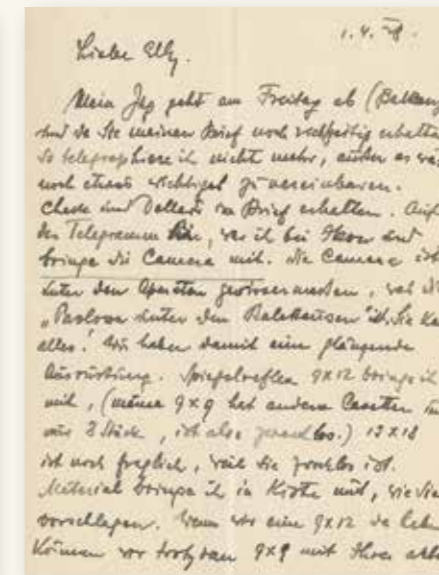 1.4.28.
Liebe Elly.
Mein Zug geht am Freitag ab (Balkan
und da Sie meinen Brief noch rechtzeitig erhalten
so telegraphiere ich nicht mehr, außer es wär
noch etwas wichtiges zu vereinbaren.
Check und Dollars im Brief erhalten. Auf
Ihr Telegramm hin, war ich bei und
bringe die Camera mit. Die Camera ist
unter den Operateuren gewesen, was die
„Pavlova unter den ist, Sie kann
alles! Wir haben damit eine glänzende
Ausrüstung. Spiegelreflex 9x12 bringe ich
mit, (meine 9x9 hat andere Casetten
nur 3 Stück, ist also zwecklos.) 13x18
ist noch fraglich, weil sie zwecklos ist.
Material bringe ich in Kiste mit, wie Sie
vorschlagen. Wenn wir eine 9x12 da haben
können wir trotzdem 9x9 mit Ihrer